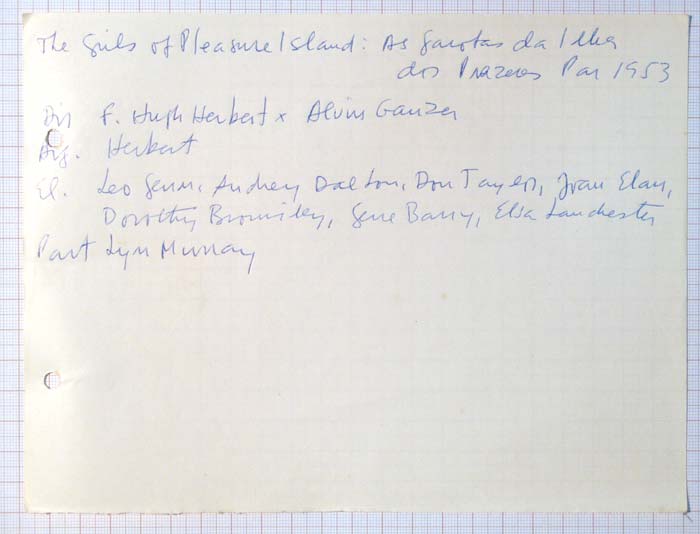 The Girls of Pleasure Island: As Garotas da Ilha
dos Prazeres Par 1953
Dir F. Hugh Herbert x Alvin Ganzer
Arg. Herbert
El. Leo Genn, Audrey Dalton, Don Taylor, Joan Elan,
Dorothy Bromiley, Gene Barry, Elsa Lanchester
Part Lyn Murray